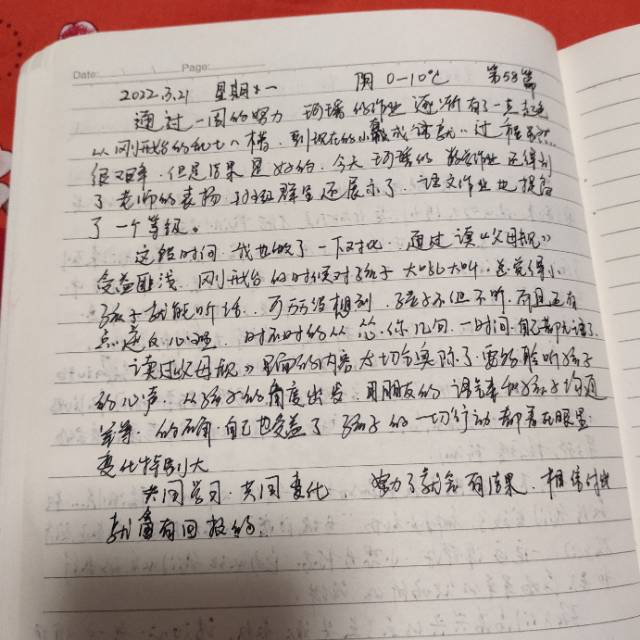 Date: Page:
2022.3.21 星期一 阴 0-10℃ 第58篇
通过一周的努力 珂瑶的作业 逐渐有了一点起色
从刚开始的乱七八糟,到现在的小有成 过程虽然
很艰辛,但是结果是好的,今天珂瑶的 数学作业还得到
了老师的表扬 班级群里还展示了,语文作业也提高
了一个等级。
这段时间 我也做了一下对比,通过读《父母规》
受益匪浅,刚开始的时候对孩子大吼大叫,总觉得小
孩子就能听话,可万没想到,孩子不但不听,而且还有
点逆反心理,时不时的从 你几句,一时间自己都
读过《父母规》里面的内容太切合实际了,要学会聆听孩子
的心声,从孩子的角度出发,用朋友的语气来和孩子沟通
等等,的确,自己也受益了 孩子的一切行动都看在眼里
变化特别大
共同学习,共同变化 努力了就会有结果,相信付出
就会有回报的